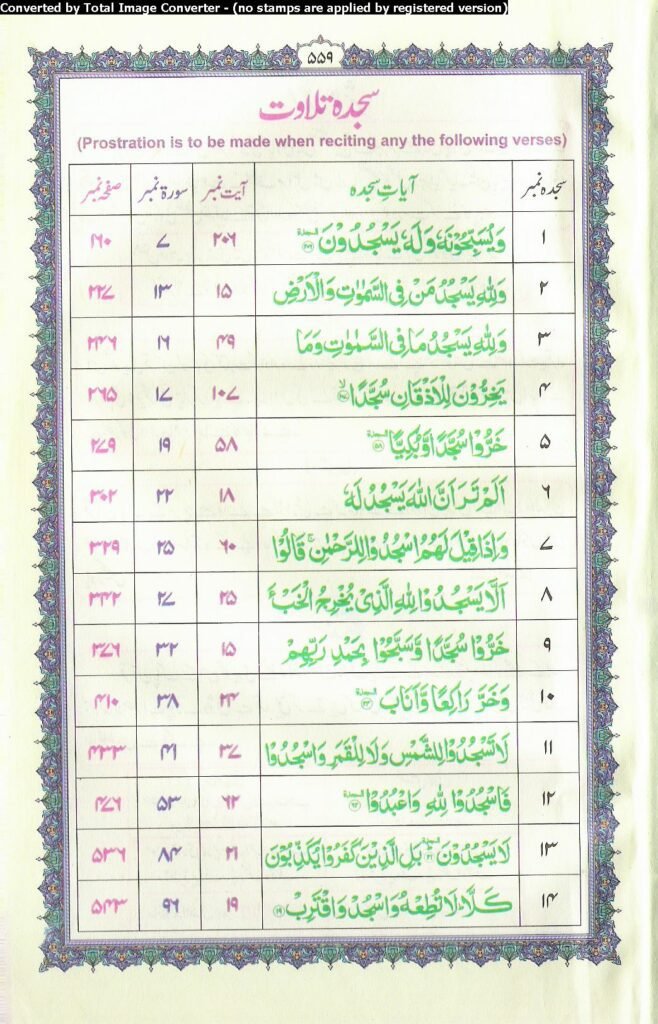 Converted by Total Image Converter - (no stamps are applied by registered version)
۵۵۹
سجدہ تلاوت
(Prostration is to be made when reciting any the following verses)
سجدہ نمبر آیاتِ سجدہ آیت نمبر سورۃ نمبر صفحہ نمبر
۱ وَيُسَبِّحُوْنَهٗ وَلَهٗ يَسْجُدُوْنَ ۲۰۶ ۷ ۱۶۰
۲ وَلِلّٰهِ يَسْجُدُ مَنْ فِى السَّمٰوٰتِ وَالْاَرْضِ ۱۵ ۱۳ ۲۲۷
۳ وَلِلّٰهِ يَسْجُدُ مَا فِى السَّمٰوٰتِ وَمَا ۴۹ ۱۶ ۲۴۶
۴ يَخِرُّوْنَ لِلْاَذْقَانِ سُجَّدًا ۱۰۷ ۱۷ ۲۶۵
۵ خَرُّوْا سُجَّدًا وَّبُكِيًّا ۵۸ ۱۹ ۲۷۹
۶ اَلَمْ تَرَ اَنَّ اللّٰهَ يَسْجُدُ لَهٗ ۱۸ ۲۲ ۳۰۲
۷ وَاِذَا قِيْلَ لَهُمُ اسْجُدُوْا لِلرَّحْمٰنِ قَالُوْا ۶۰ ۲۵ ۳۲۹
۸ اَلَّا يَسْجُدُوْا لِلّٰهِ الَّذِىْ يُخْرِجُ الْخَبْءَ ۲۵ ۲۷ ۳۴۲
۹ خَرُّوْا سُجَّدًا وَّسَبَّحُوْا بِحَمْدِ رَبِّهِمْ ۱۵ ۳۲ ۳۷۶
۱۰ وَخَرَّ رَاكِعًا وَّاَنَابَ ۲۴ ۳۸ ۴۱۰
۱۱ لَا تَسْجُدُوْا لِلشَّمْسِ وَلَا لِلْقَمَرِ وَاسْجُدُوْا ۳۷ ۴۱ ۴۳۳
۱۲ فَاسْجُدُوْا لِلّٰهِ وَاعْبُدُوْا ۶۲ ۵۳ ۴۷۶
۱۳ لَا يَسْجُدُوْنَ بَلِ الَّذِيْنَ كَفَرُوْا يُكَذِّبُوْنَ ۲۱ ۸۴ ۵۳۶
۱۴ كَلَّا لَا تُطِعْهُ وَاسْجُدْ وَاقْتَرِبْ ۱۹ ۹۶ ۵۴۳